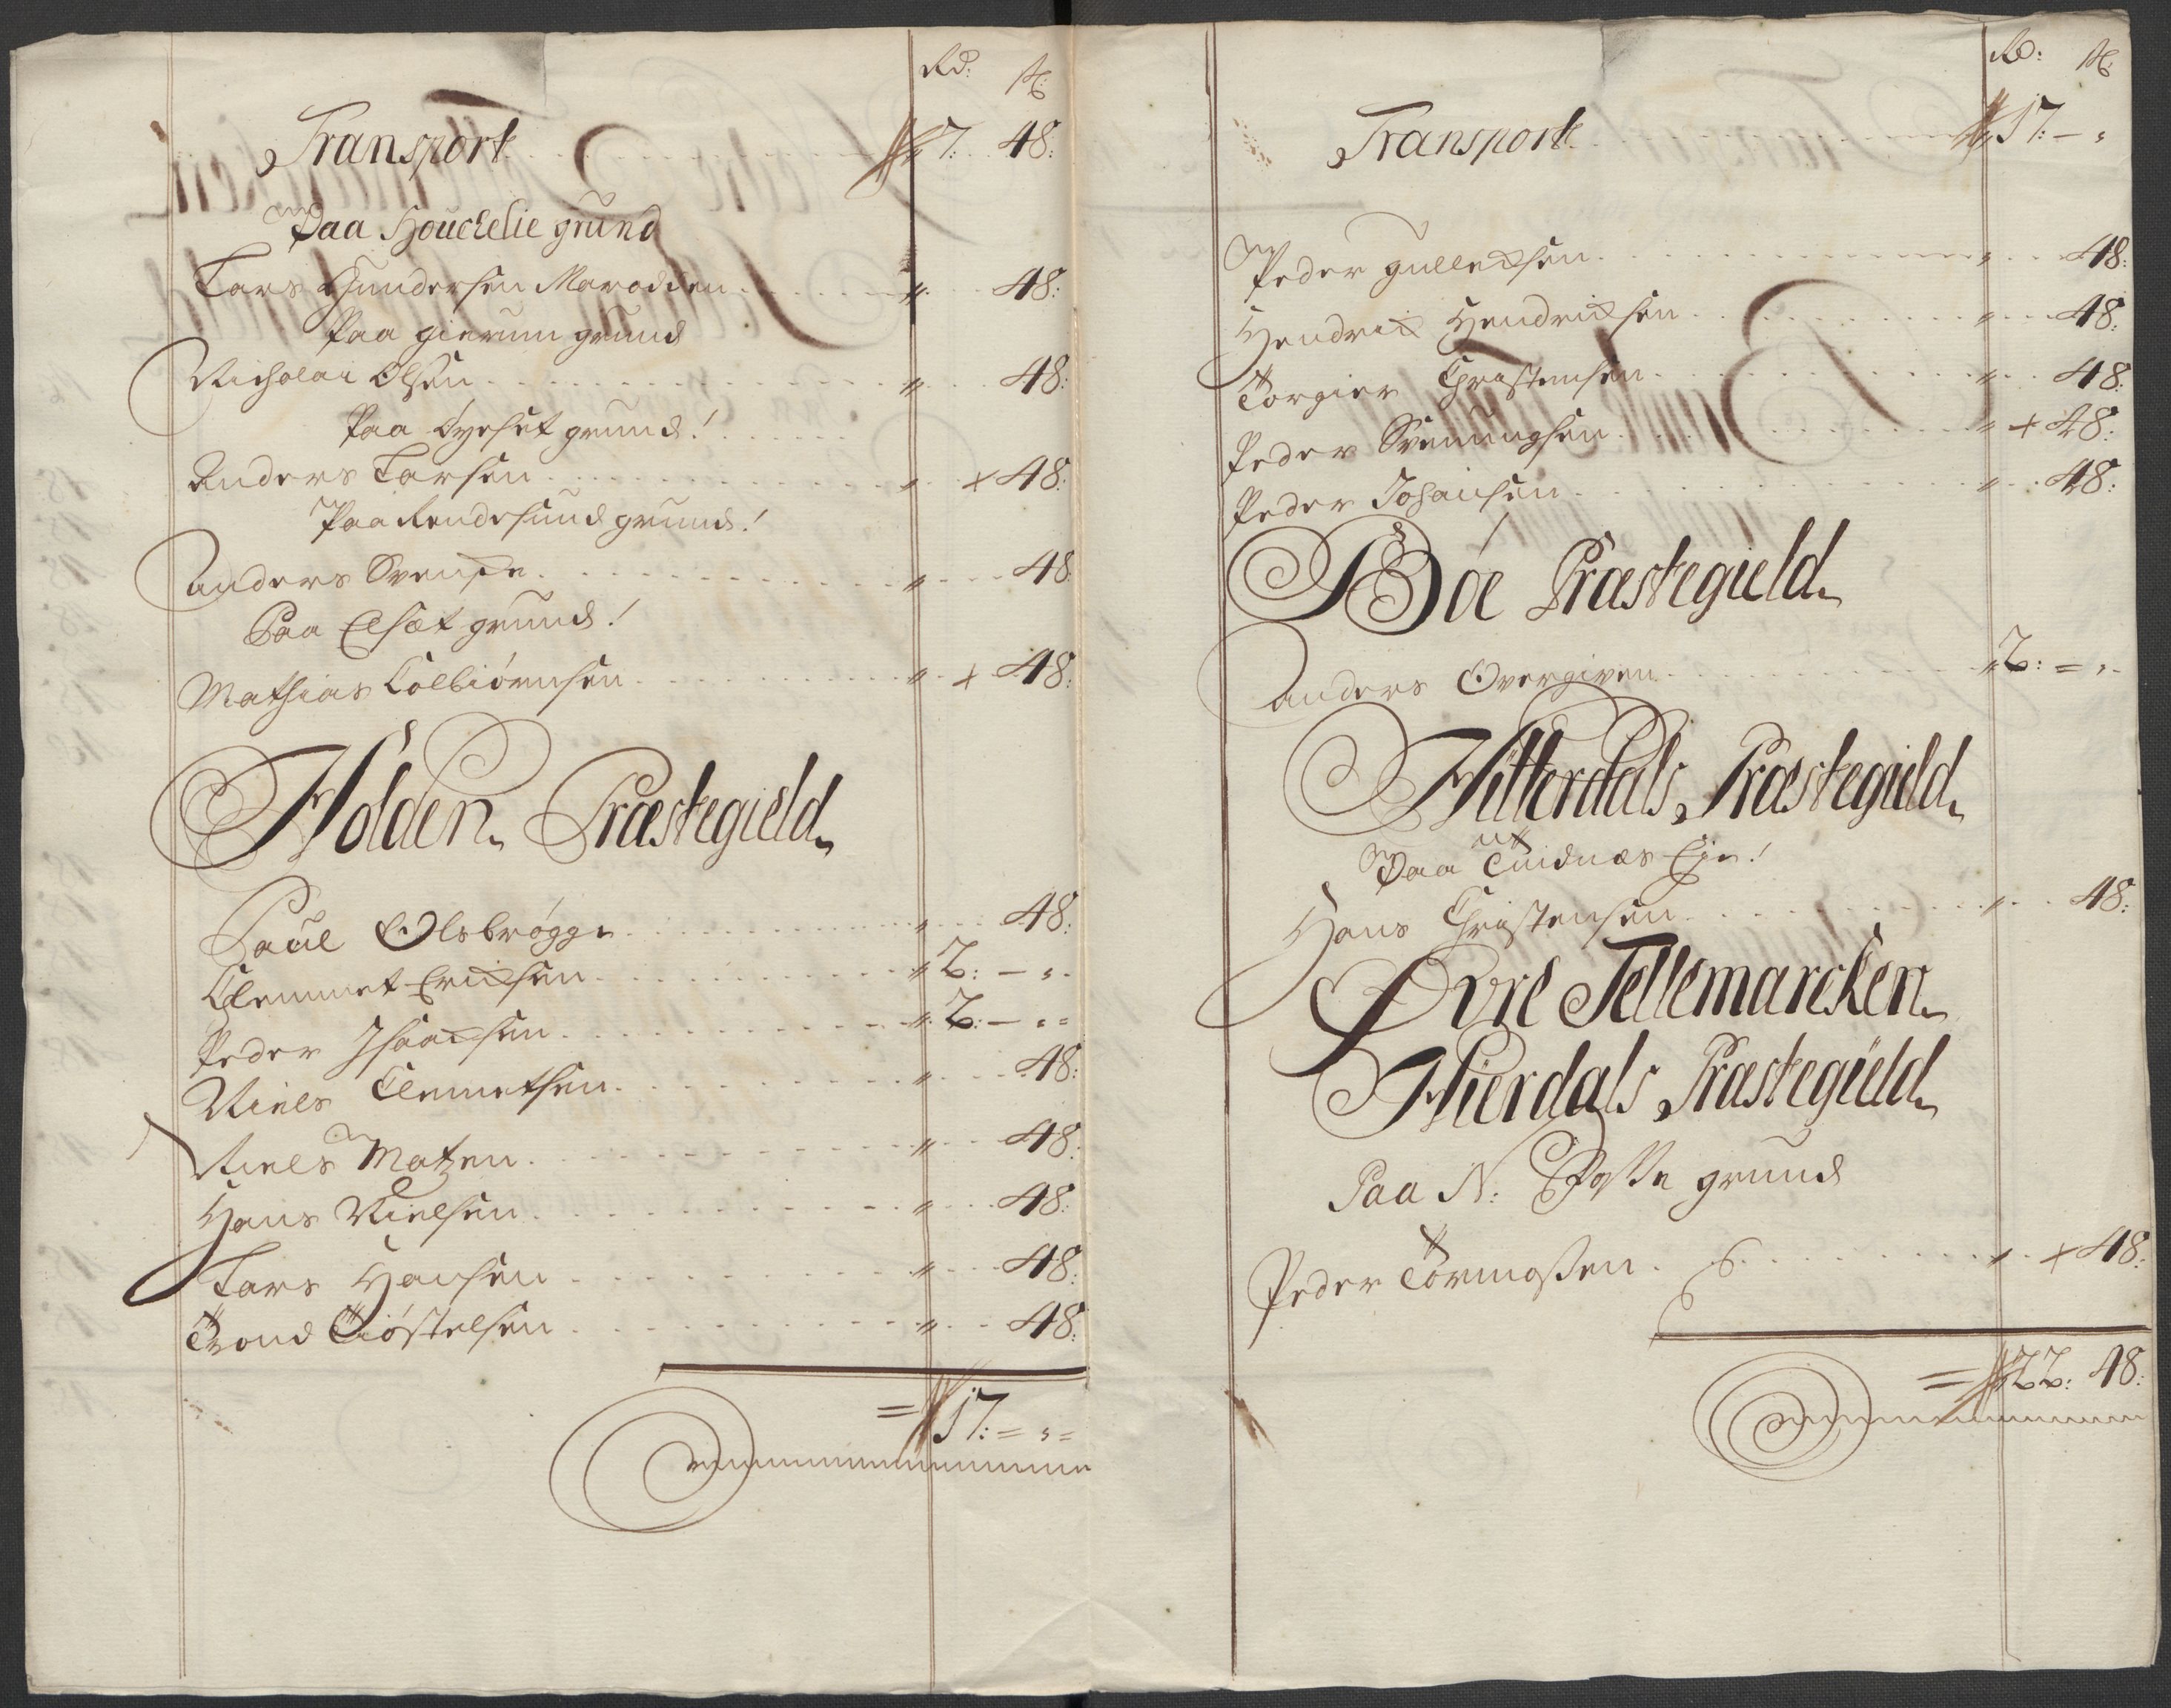 Rd: ß:
Transport 7: 48:
Paa Houckelie grund
Lars Gundersen Marodden 48:
Paa gierum grund
Nicholai Olsen 48:
Paa Øyeset grund!
Anders Larsen + 48:
Paa Rendesund grund!
Anders Svense 48
Paa Elset grund!
Mathias Colbiørnsen + 48:
Holden Præstegield
Paul Olsbrygge 48:
Clemmet Erichsen 2: –
Peder Isaachsen 2: –
Niels Clemetsen 48:
Niels Matzen 48:
Hans Nielsen 48:
Lars Hansen 48:
Trond Kiøstelsen 48:
= 17: =
Rd: ß:
Transport 17: –
Peder Gullechsen 48:
Hendrich Hendrichsen 48:
Torgier Christensen 48:
Peder Svenungsen + 48:
Peder Johansen 48:
Bøe Præstegield
Anders Overgiven 2: =
Hitterdals Præstegield
Paa Tuidnæs Eje!
Hans Christensen 48:
Øvre Tellemarcken
Hierdals Præstegield
Paa N: grund
Peder Tormoßen + 48:
= 22: 48: